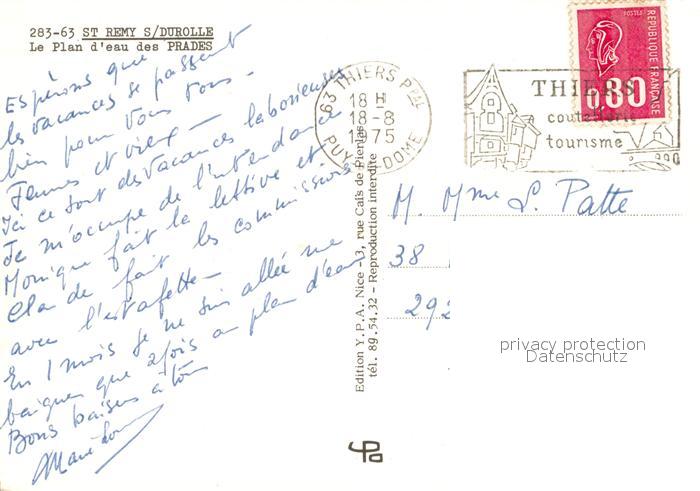 283-63 ST REMY S/DUROLLE
Le Plan d'eau des PRADES
Espérons que
les vacances se passent
bien pour vous tous -
Jeunes et vieux -
Ici ce sont des vacances laborieuses
Je m'occupe de l'intendance
Monique fait la lessive et
fait les commissions
avec l'estafette -
En 1 mois je ne suis allée me
baigner que 2 fois au plan d'eau
Bons baisers à tous
Edition Y.P.A. Nice - 3, rue Caïs de Pierlas
tél. 89.54.32 - Reproduction interdite
63 THIERS Ppal
18 H
18-8
1975
PUY DE DOME
THIERS
coutellerie
tourisme
POSTES
REPUBLIQUE FRANÇAISE
0,80
M. Mme L. Patte
38
292
privacy protection
Datenschutz